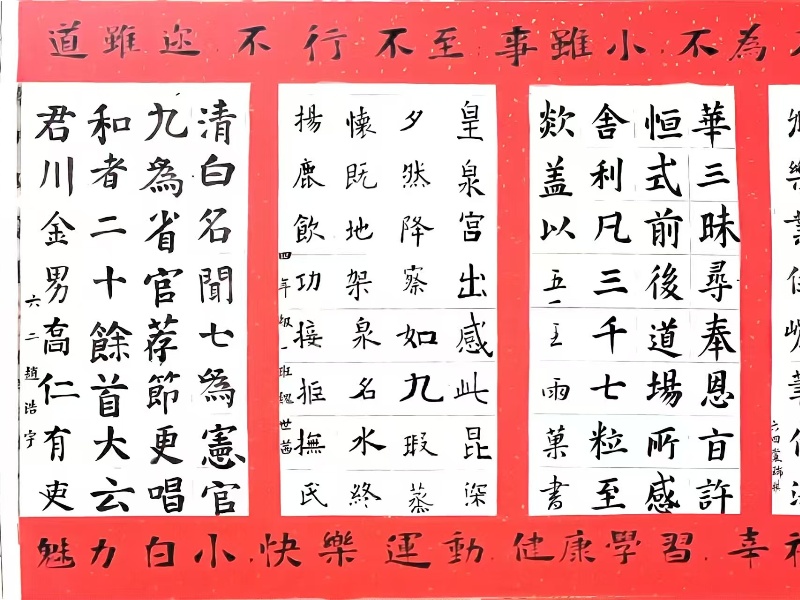 道雖迩不行不至·事雖小·不為
清白名聞七為憲官
九為省官荐節更唱
和者二十餘首大云
君川金男高仁有吏
六二趙浩宇
皇泉宮出感此昆深
夕然降察如九瑕蒸
懷既地架泉名水終
揚鹿飲功接拒撫氏
四年級一班魏世茜
華三昧尋奉恩旨許
恒式前後道場所感
舍利凡三千七粒至
欻盖以
五一王雨菓書
魅力白小·快樂運動·健康學習·幸